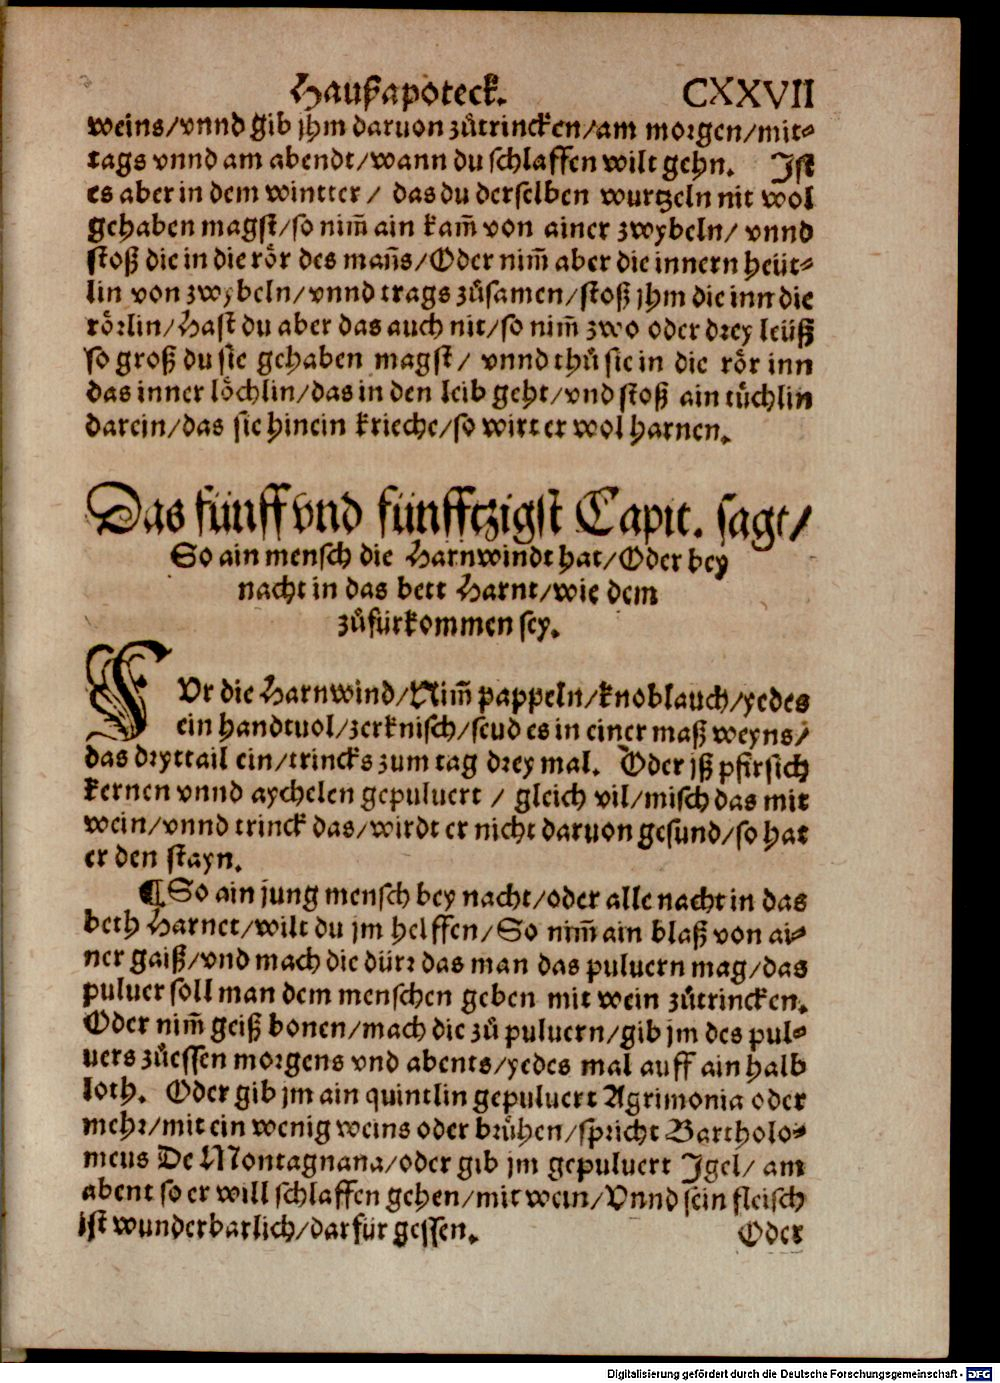 Haußapoteck. CXXVII
weins/vnnd gib jhm daruon zůtrincken/am morgen/mit⸗
tags vnnd am abendt/wann du schlaffen wilt gehn. Ist
es aber in dem wintter/ das du derselben wurtzeln nit wol
gehaben magst/so nim̃ ain kam̃ von ainer zwybeln/ vnnd
stoß die in die rör des mañs/Oder nim̃ aber die innern heüt⸗
lin von zwybeln/vnnd trags zůsamen/stoß jhm die inn die
rörlin/Hast du aber das auch nit/so nim̃ zwo oder drey leüß
so groß du sie gehaben magst/ vnnd thů sie in die rör inn
das inner löchlin/das in den leib geht/vnd stoß ain tüchlin
darein/das sie hinein krieche/so wirt er wol harnen.
Das fünff vnd fünfftzigst Capit. sagt/
So ain mensch die Harnwindt hat/Oder bey
nacht in das bett Harnt/wie dem
zůfürkommen sey.
FVr die Harnwind/Nim̃ pappeln/knoblauch/yedes
ein handtuol/zerknisch/seud es in einer maß weyns/
das dryttail ein/trincks zum tag drey mal. Oder jß pfirsich
kernen vnnd aychelen gepuluert / gleich vil/misch das mit
wein/vnnd trinck das/wirdt er nicht daruon gesund/so hat
er den stayn.
¶ So ain jung mensch bey nacht/oder alle nacht in das
beth Harnet/wilt du jm helffen/So nim̃ ain blaß von ai⸗
ner gaiß/vnd mach die dürr das man das puluern mag/das
puluer soll man dem menschen geben mit wein zůtrincken.
Oder nim̃ geiß bonen/mach die zů puluern/gib jm des pul⸗
uers zůessen morgens vnd abents/yedes mal auff ain halb
loth. Oder gib jm ain quintlin gepuluert Agrimonia oder
mehr/mit ein wenig weins oder brühen/spricht Bartholo⸗
meus De Montagnana/oder gib jm gepuluert Igel/ am
abent so er will schlaffen gehen/mit wein/Vnnd sein fleisch
ist wunderbarlich/darfür gessen. Oder
Digitalisierung gefördert durch die Deutsche Forschungsgemeinschaft - DFG